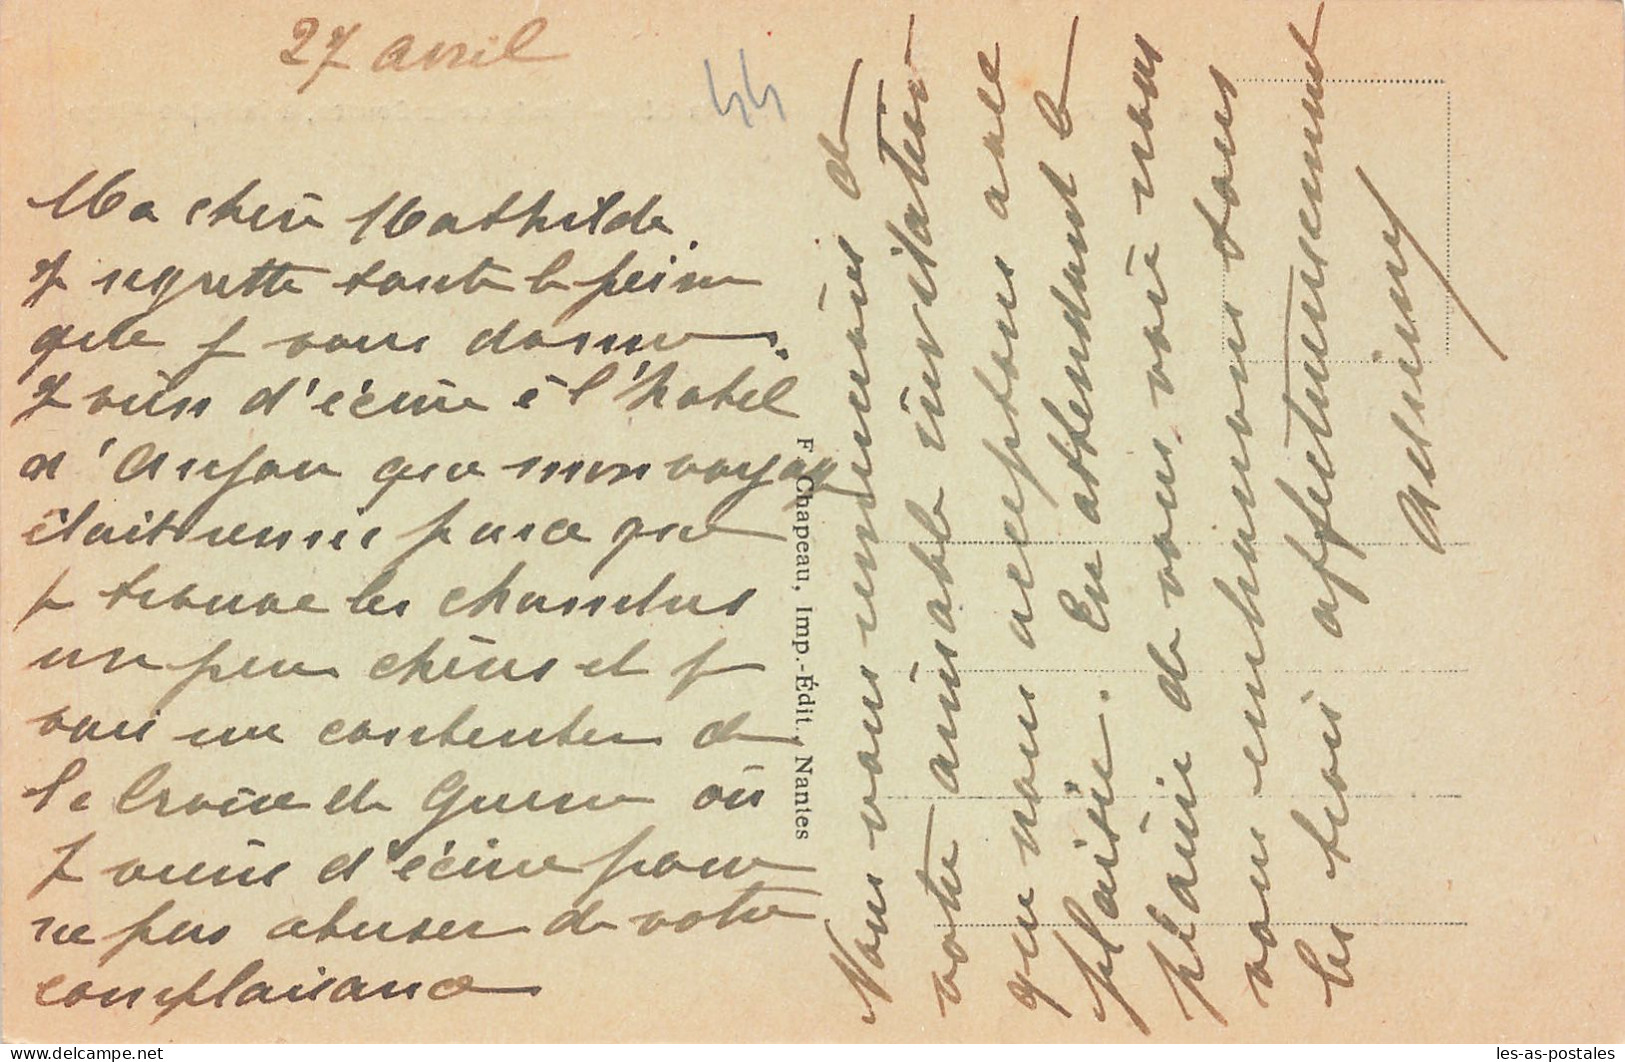 27 avril
44
Ma chère Mathilde,
Je regrette toute la peine
que je vous donne.
Je viens d'écrire à l'hôtel
d'Anjou que mon voyage
était remis parce que
je trouve les chambres
un peu chères et je
vais me contenter de
la Croix de Guerre où
je viens d'écrire pour
ne pas abuser de votre
complaisance
F. Chapeau, Imp.-Édit., Nantes
Nous vous remercions de
votre aimable invitation
que nous acceptons avec
plaisir. En attendant le
plaisir de vous voir nous
vous embrassons tous
les trois affectueusement
les-as-postales